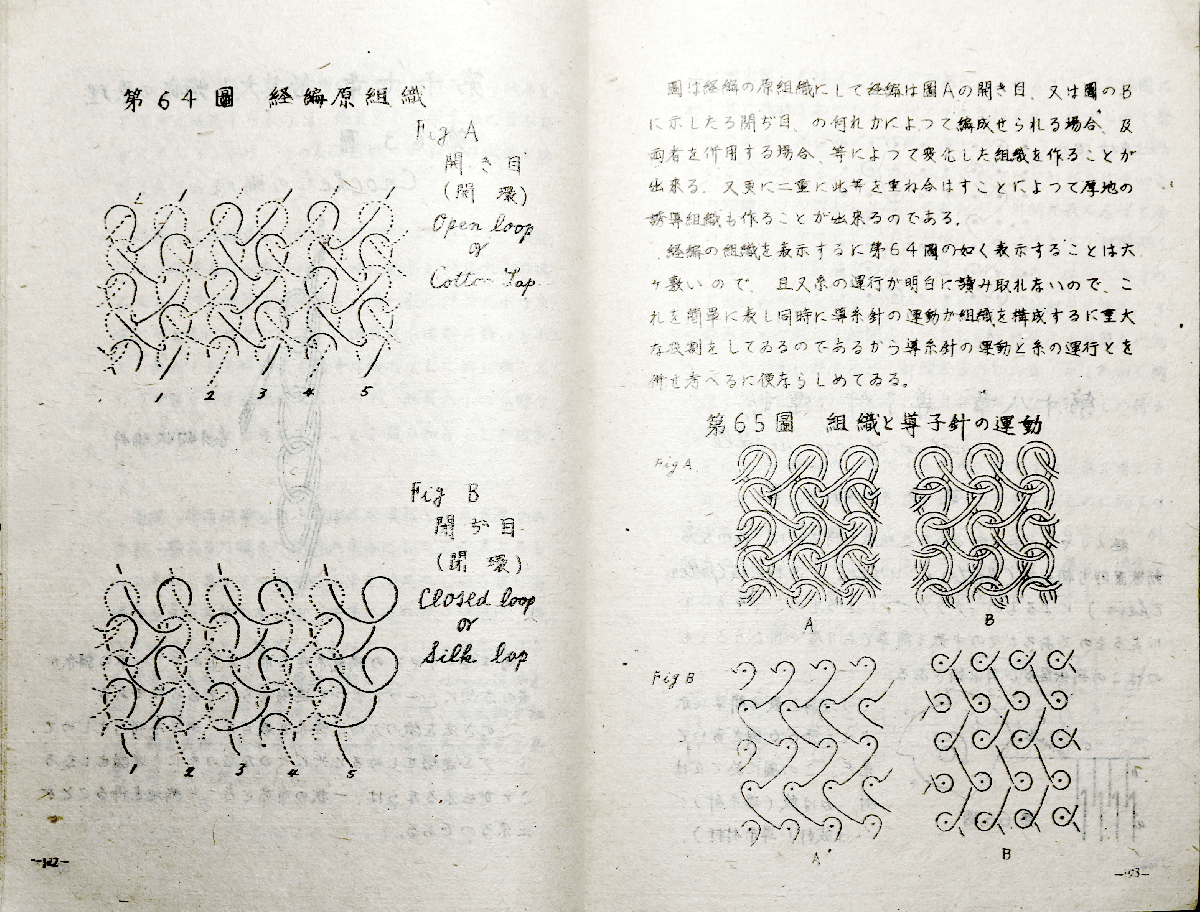 第64圖 経編原組織
Fig A
開き目
(開 環)
Open loop
or
Cotton Lap
1 2 3 4 5
Fig B
閉ぢ目
(閉 環)
Closed loop
or
Silk lap
1 2 3 4 5
—122—
圖は経編の原組織にして経編は圖Aの開き目、又は圖のB
に示したる閉ぢ目、の何れかによつて編成せられる場合、及
両者を併用する場合、等によつて変化した組織を作ることが
出来る、又更に二重に此等を重ね合はすことによつて厚地の
誘導組織も作ることが出来るのである。
経編の組織を表示するに第64圖の如く表示することは六
ヶ敷いので、且又糸の運行が明白に讀み取れないので、こ
れを簡單に表し同時に導糸針の運動が組織を構成するに重大
な役割をしてゐるのであるから導糸針の運動と糸の運行とを
併せ考へるに便ならしめてゐる。
第65圖 組織と導子針の運動
Fig A
A B
Fig B
A' B